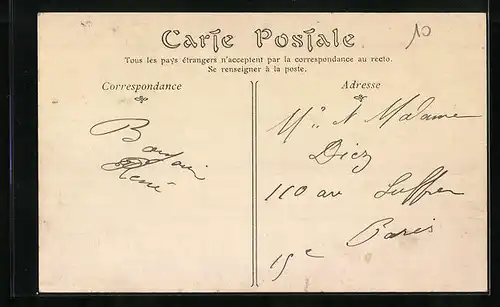 Carte Postale
10
Tous les pays étrangers n'acceptent par la correspondance au recto.
Se renseigner à la poste.
Correspondance
Adresse
René
Mr & Madame
Diez
110 av Suffren
Paris
15e